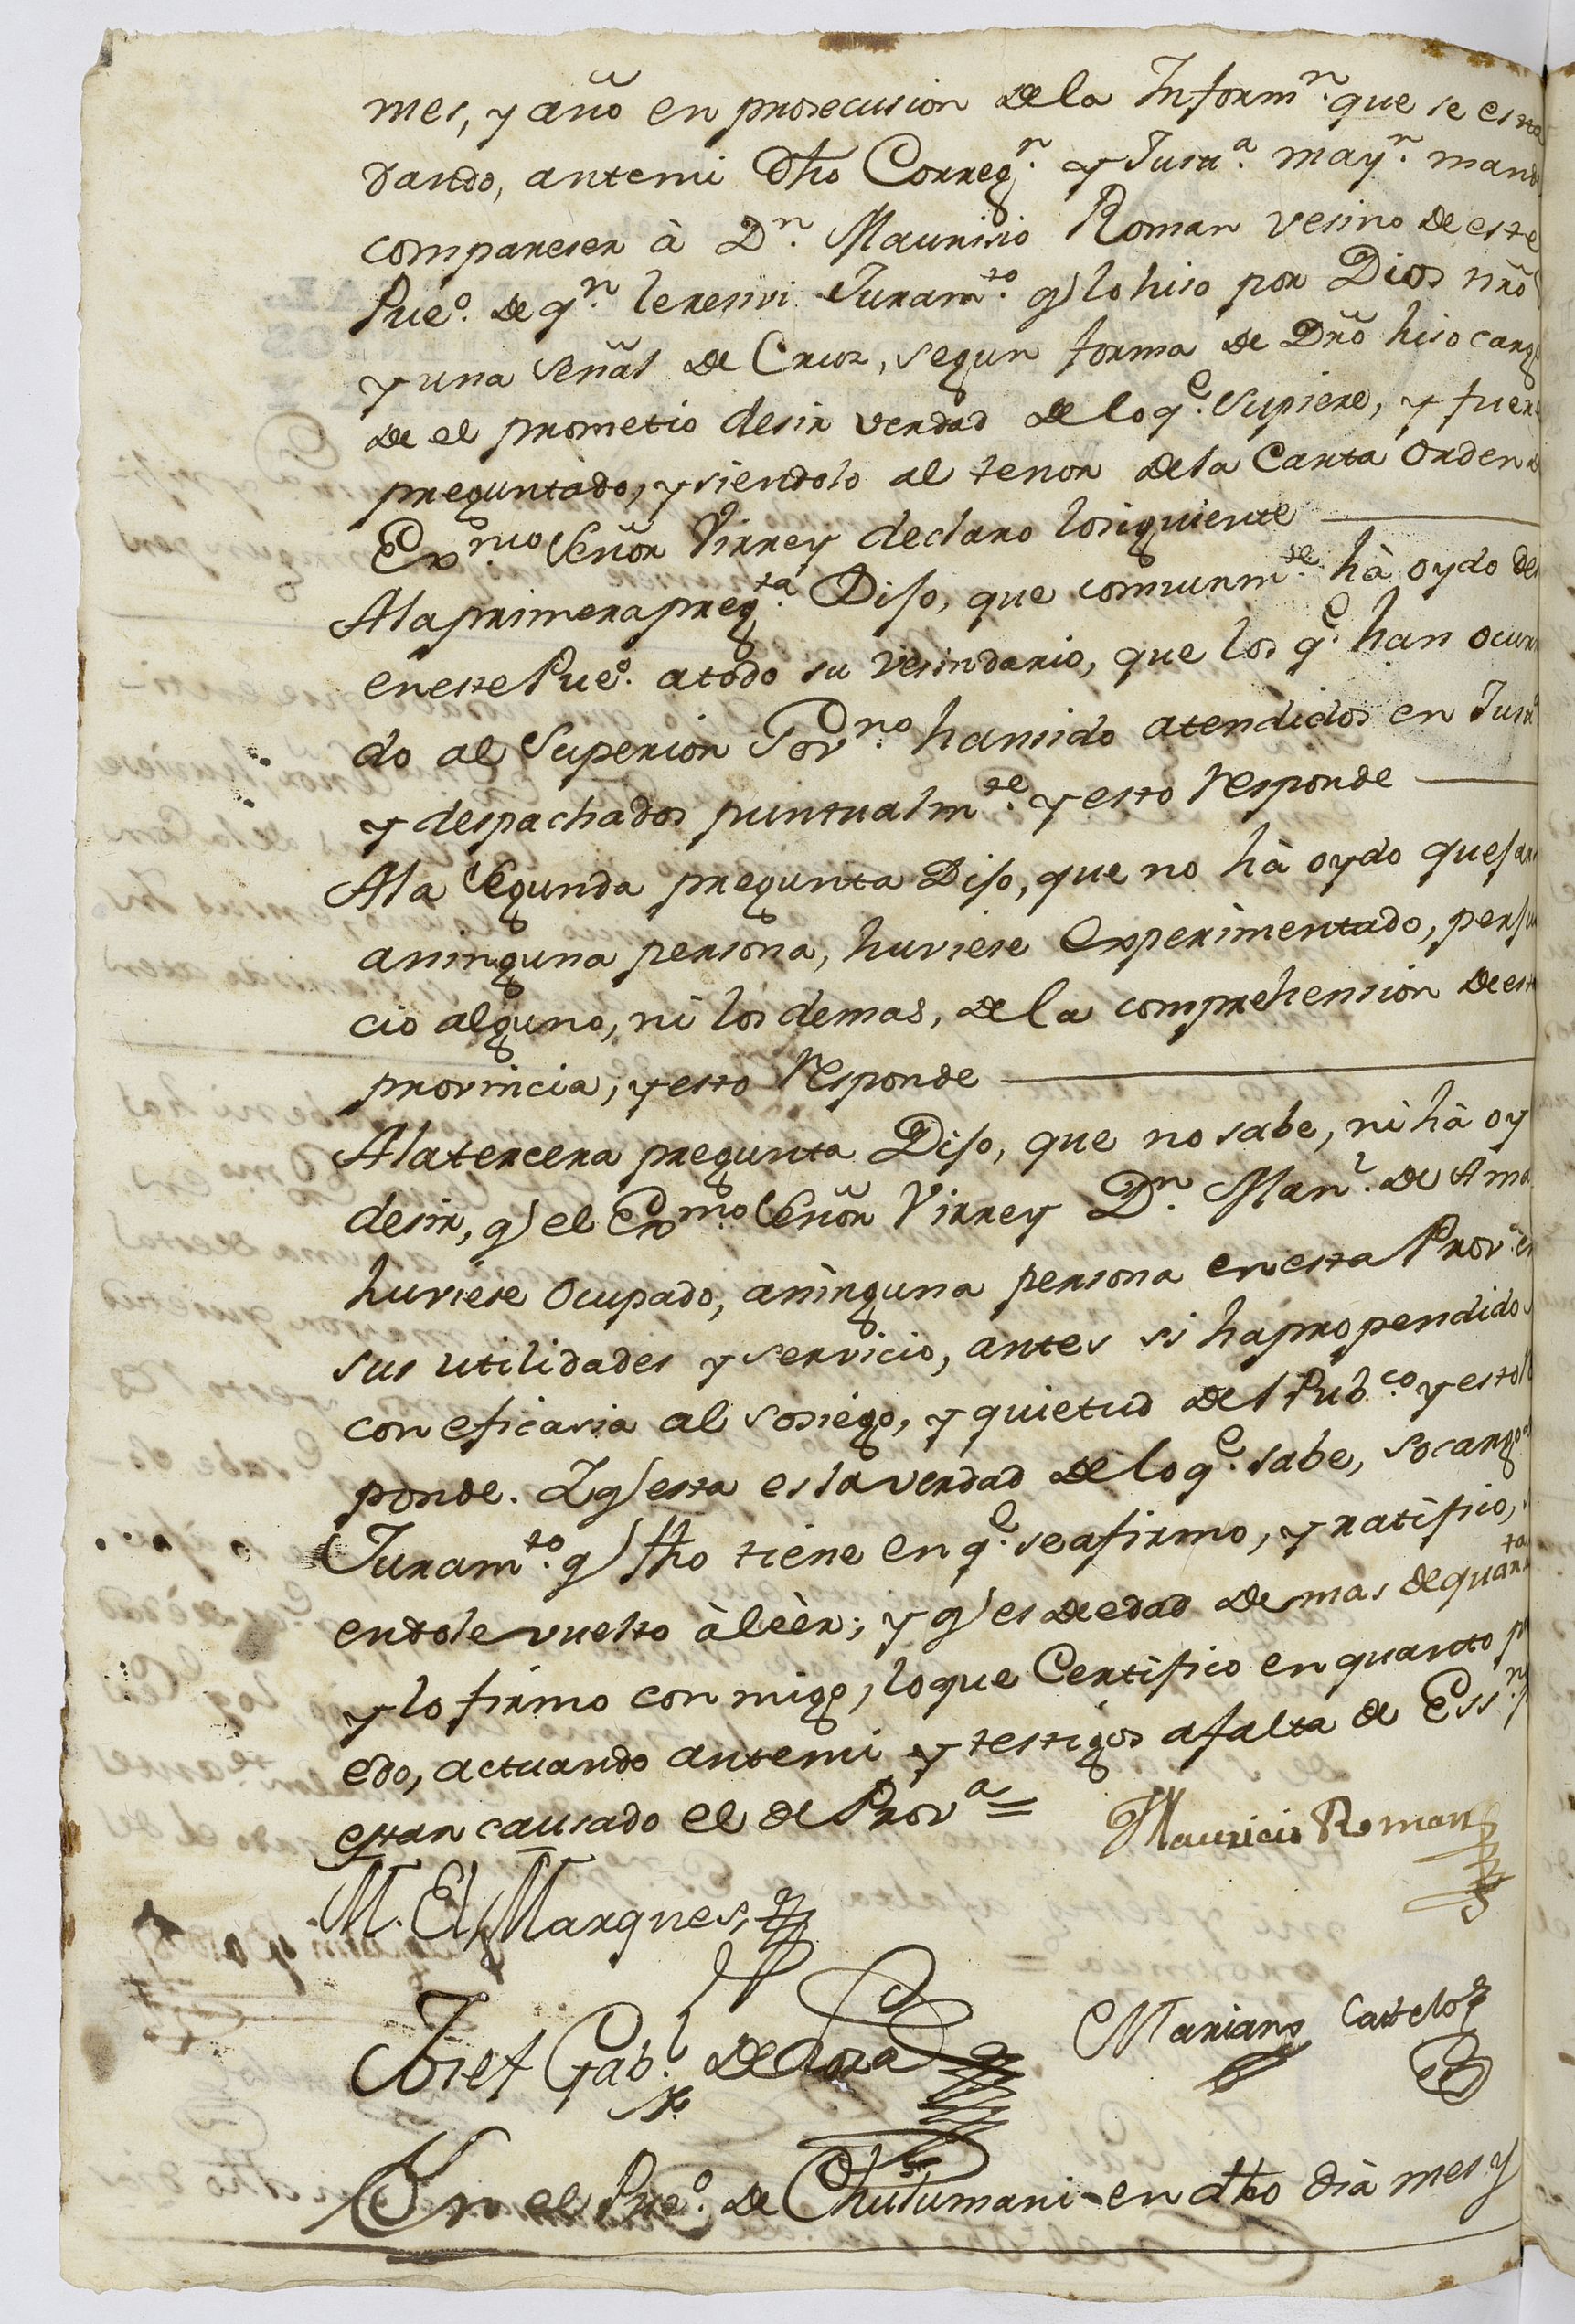 mes, y año en prosecusion de la Informⁿ. que se esta
dando, antemi dho Corregʳ. y Justᵃ. mayʳ. mande
compareser à Dⁿ. Maurisio Roman vesino de este
Pueº. de qⁿ. leresivi Juramᵗº. q̃ lo hiso por Dios nrõ
y una señal de Cruz, segun forma de Drõ hiso cargo
de el prometio desir verdad de loqᵉ. supiere, y fuere
preguntado, y siendolo al tenor dela Carta Orden
Exᵐº Señor Virrey declaro losiguiente
Alaprimerapregᵗᵃ. Dijo, que comunmᵗᵉ. hà oydo
eneste Pueº. atodo su vesindario, que los qᵉ. han ocurri
do al Superior Govⁿº. hansido atendidos en Justᵃ
y despachados puntualmᵗᵉ. y esto responde
Ala Segunda pregunta Dijo, que no hà oydo que
aninguna persona, huviese experimentado, perjui
cio alguno, ni los demas, de la comprehension de esta
provincia, y esto responde
Alatercera pregunta Dijo, que no sabe, ni hà oy
desir, q̃ el Exᵐº Señor Virrey Dⁿ. Manˡ. de Ama
huviese Ocupado, aninguna persona enesta Provᵃ. en
sus utilidades y servicio, antes si hapropendido
con eficasia al sosiego, y quietud del Pubᶜº. y esto
ponde. Y q̃ esta es la verdad de loqᵉ. sabe, socargo
Juramᵗº. q̃ fho tiene en qᵉ. seafirmo, y ratifico,
endole vuelto à leèr; y q̃ es de edad de mas de quarᵗᵃ
y lo firmo con migo, loque Certifico en quanto
edo, actuando antemi y testigos afalta de Essⁿº
estar causado el de Provᵃ =
Mauricio Roman
M. El Marques
Josef Gabˡ. de Loza
Mariano Castelo
En el Pueº. de Chulumani en dho dià mes y